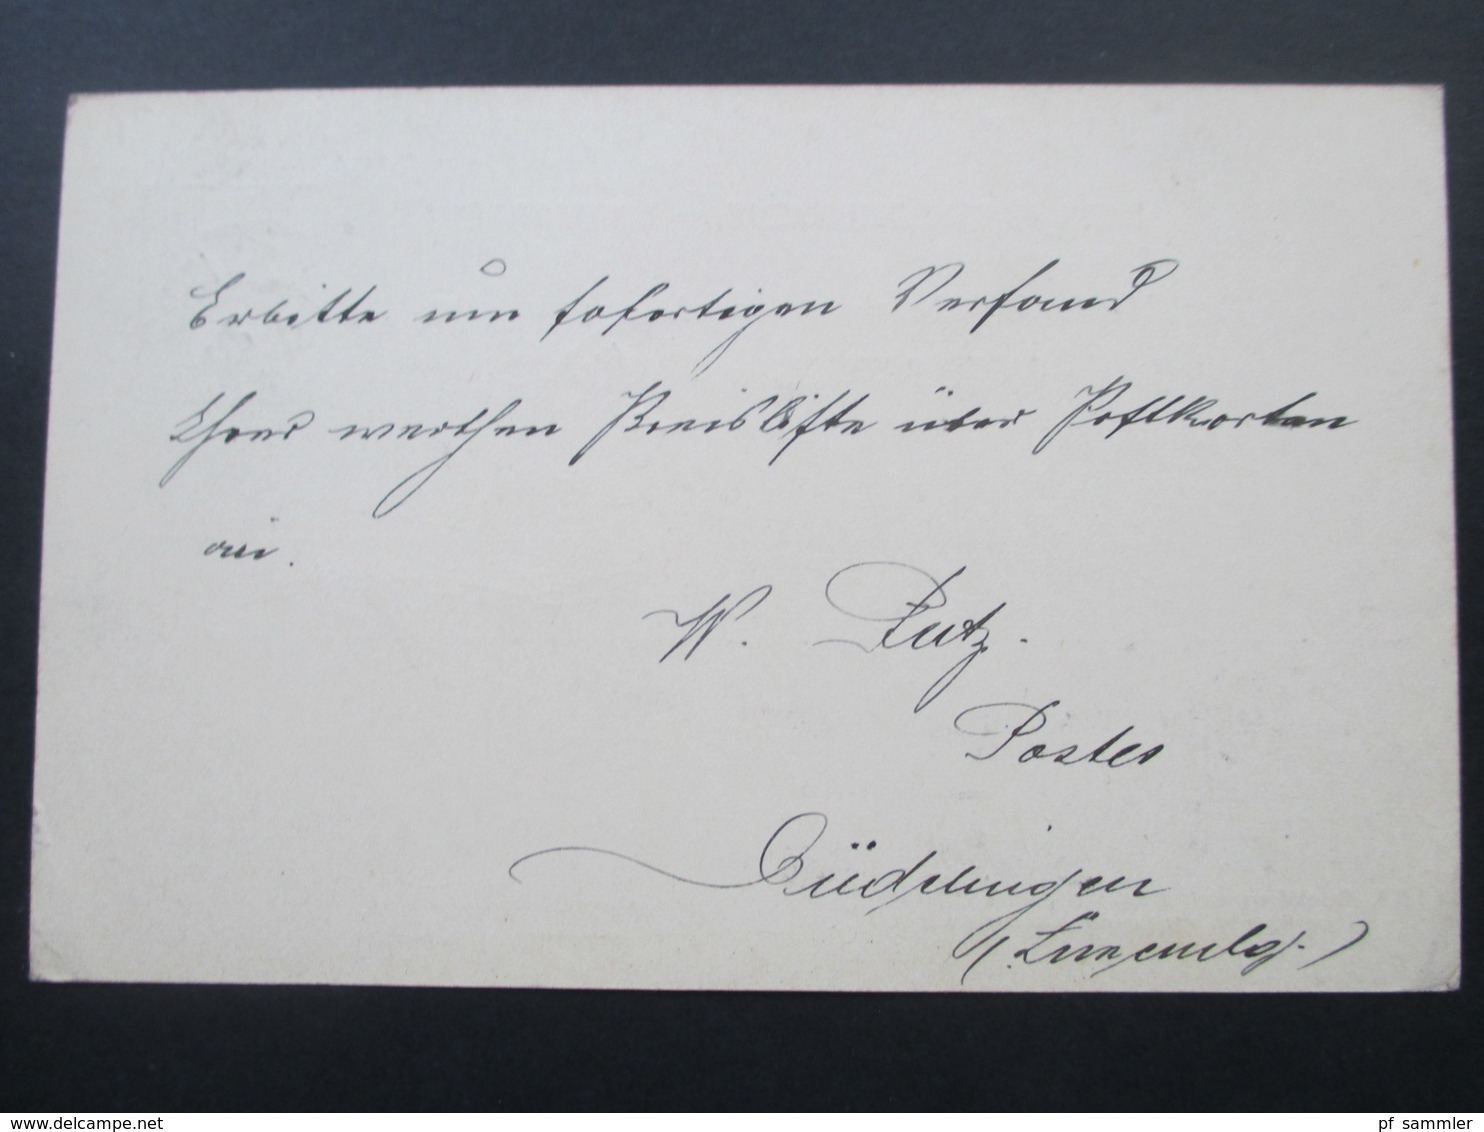 Erbitte um sofortigen Versand
Ihres werthen Preisliste über Postkarten
an.
W. Putz.
Postes
Düdelingen
(Luxembg.)
delcampe.net
pf_sammler